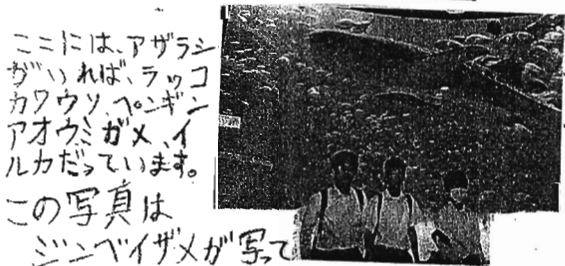 ここには、アザラシ
がいれば、ラッコ
カワウソ、ペンギン
アオウミガメ、イ
ルカだっています。
この写真は
ジンベイザメが写って